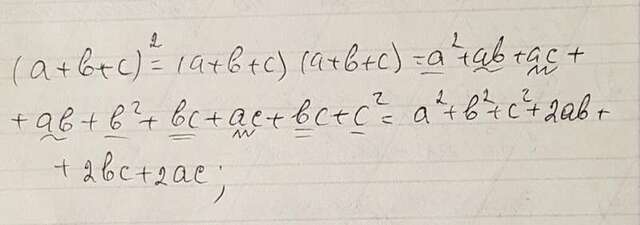 (a+b+c)²=(a+b+c)(a+b+c)=a²+ab+ac+
+ab+b²+bc+ac+bc+c²=a²+b²+c²+2ab+
+2bc+2ac;